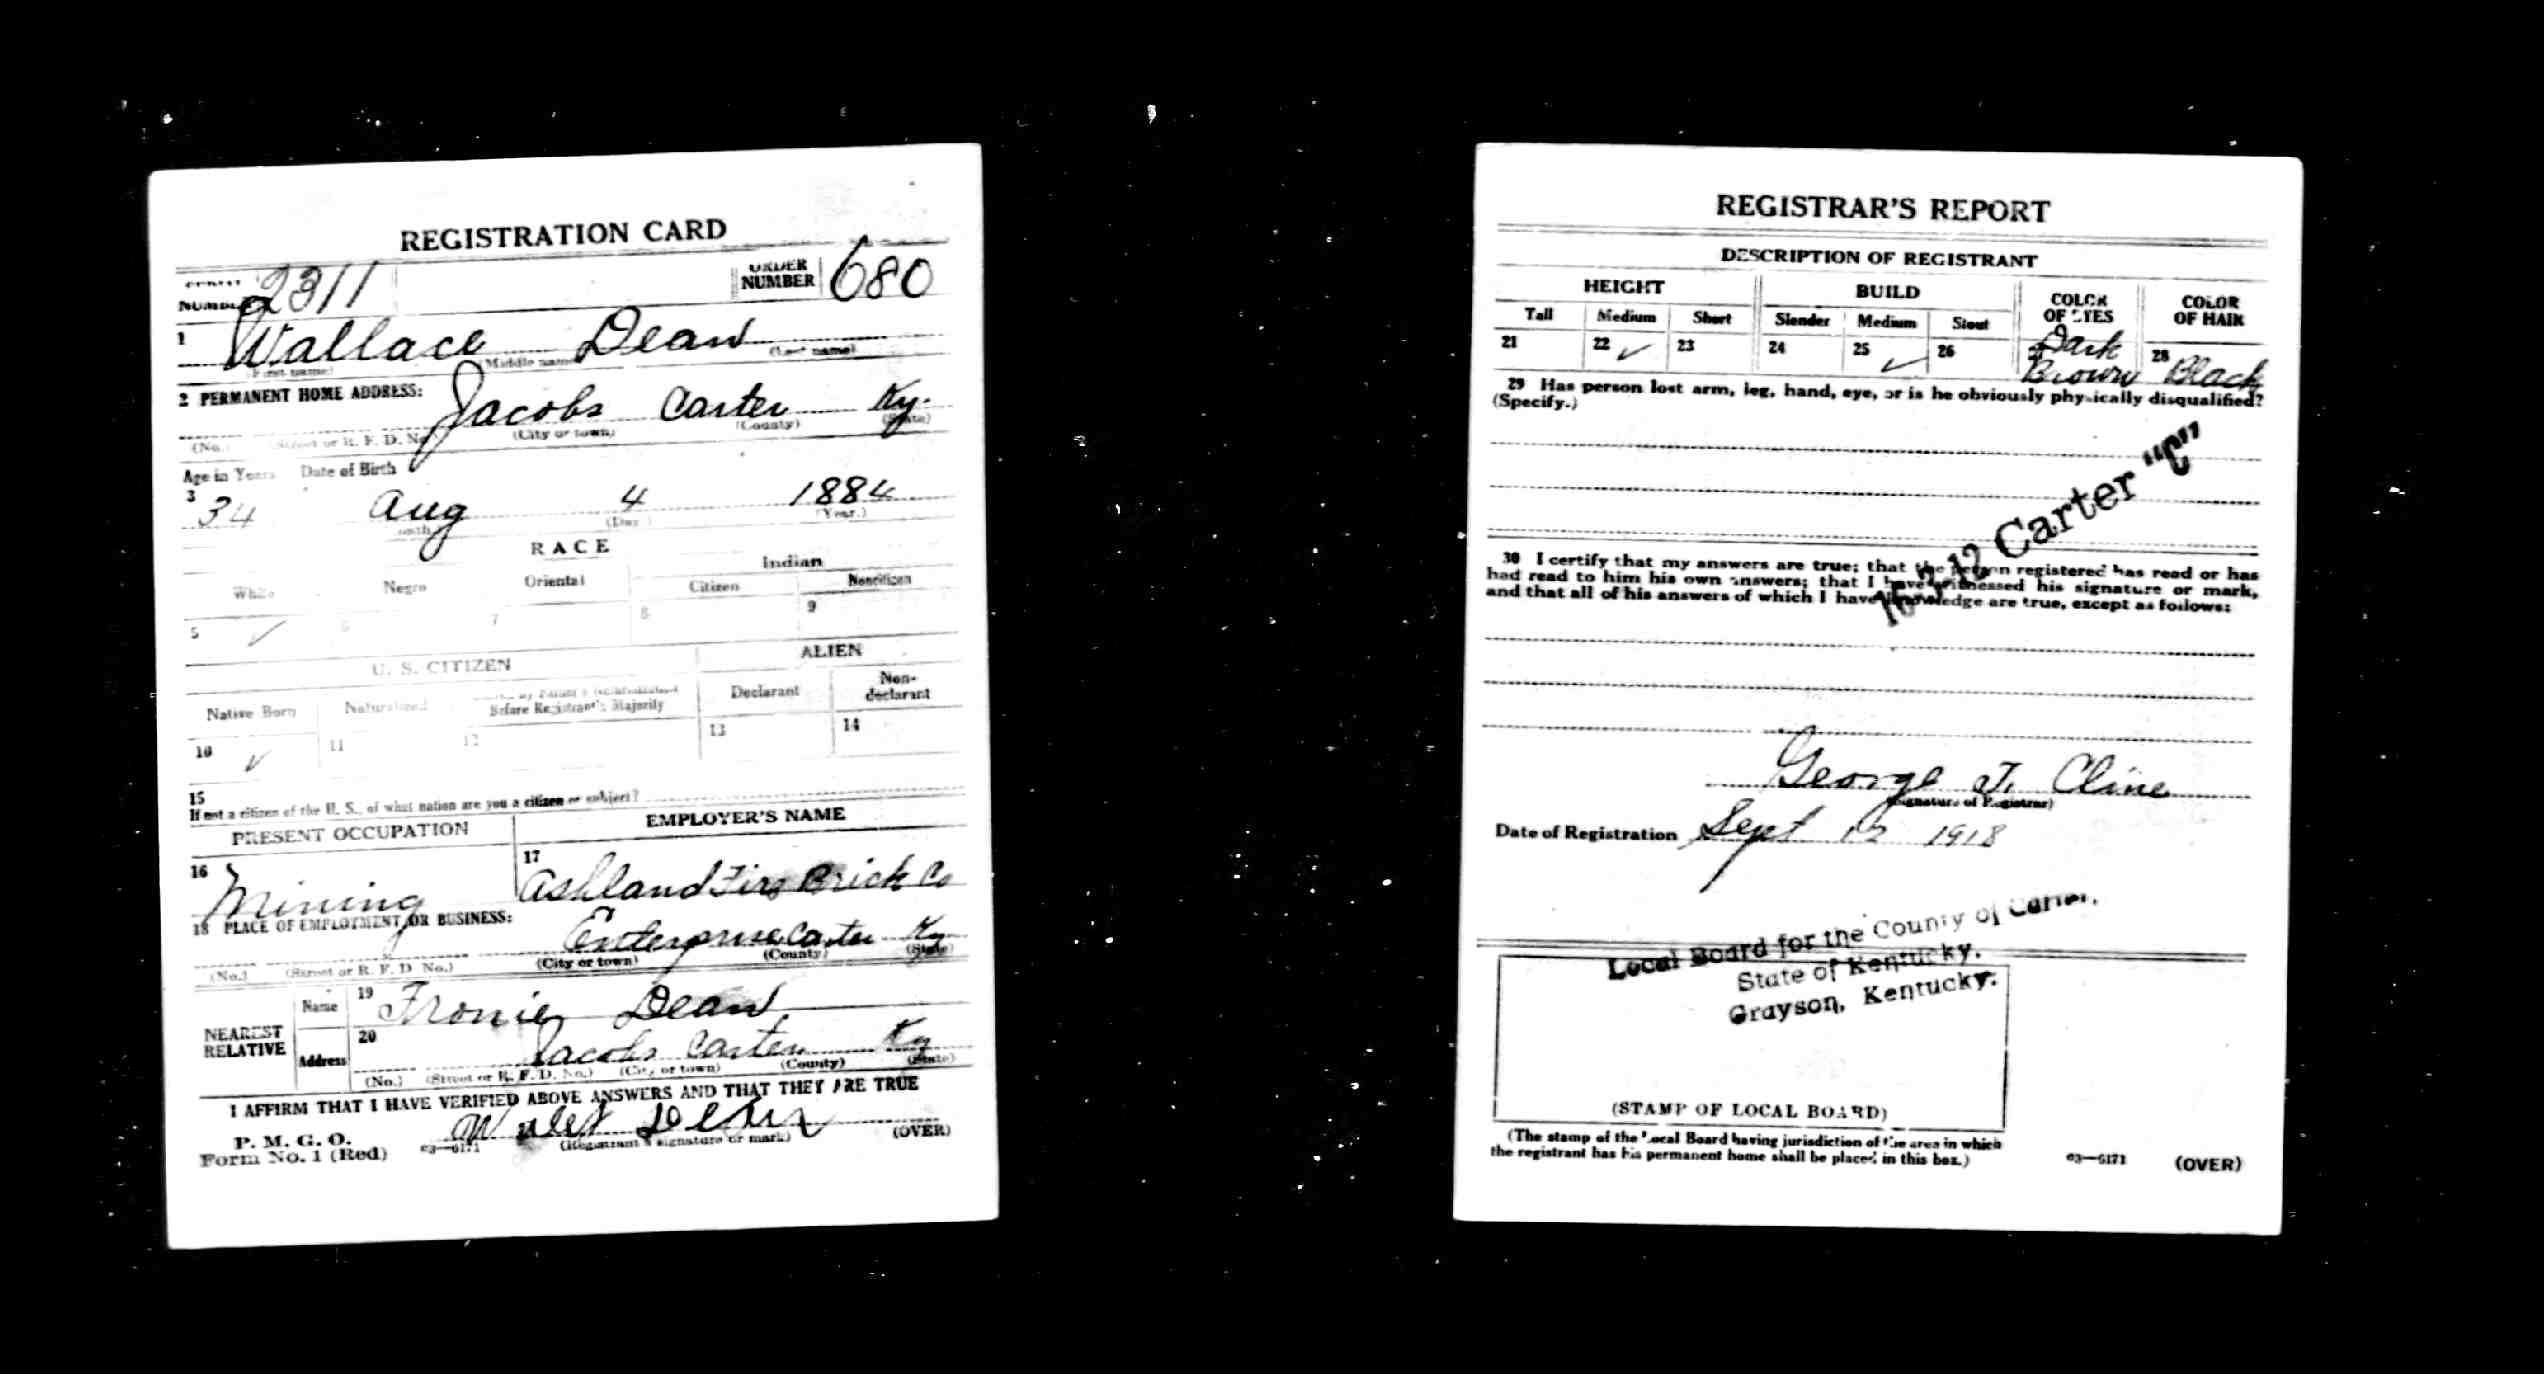 REGISTRATION CARD
NUMBER 2311 ORDER NUMBER 680
1 Wallace Dean
(First name) (Middle name) (Last name)
2 PERMANENT HOME ADDRESS:
Jacobs Carter Ky.
(No.) (Street or R. F. D. No.) (City or town) (County) (State)
Age in Years Date of Birth
3 34 Aug 4 1884
(Day.) (Year.)
RACE
White Negro Oriental Indian
Citizen Noncitizen
5 ✓ 6 7 8 9
U. S. CITIZEN ALIEN
Native Born Naturalized Before Registrant's Majority Declarant Non-declarant
10 ✓ 11 12 13 14
15
If not a citizen of the U. S., of what nation are you a citizen or subject?
PRESENT OCCUPATION EMPLOYER'S NAME
16 Mining 17 Ashland Fire Brick Co
18 PLACE OF EMPLOYMENT OR BUSINESS:
Enterprise Carter Ky
(No.) (Street or R. F. D. No.) (City or town) (County) (State)
NEAREST RELATIVE
Name 19 Fronie Dean
Address 20 Jacobs Carter Ky
(No.) (Street or R. F. D. No.) (City or town) (County) (State)
I AFFIRM THAT I HAVE VERIFIED ABOVE ANSWERS AND THAT THEY ARE TRUE
P. M. G. O.
Form No. 1 (Red) 03—6171 (Registrant's signature or mark) (OVER)
REGISTRAR'S REPORT
DESCRIPTION OF REGISTRANT
HEIGHT BUILD COLOR OF EYES COLOR OF HAIR
Tall Medium Short Slender Medium Stout
21 22 ✓ 23 24 25 ✓ 26 Dark Brown 28 Black
29 Has person lost arm, leg, hand, eye, or is he obviously physically disqualified?
(Specify.)
16-2-12 Carter "C"
30 I certify that my answers are true; that the person registered has read or has
had read to him his own answers; that I have witnessed his signature or mark,
and that all of his answers of which I have knowledge are true, except as follows:
George J. Cline
(Signature of Registrar)
Date of Registration Sept 12 1918
Local Board for the County of Carter,
State of Kentucky.
Grayson, Kentucky.
(STAMP OF LOCAL BOARD)
(The stamp of the Local Board having jurisdiction of the area in which
the registrant has his permanent home shall be placed in this box.)
03—6171 (OVER)